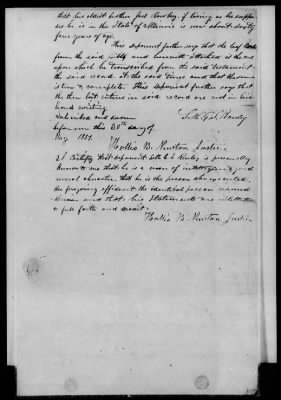 that his oldest brother Joel Hawley, if living as he suppo-
ses he is in the State of Illinois is now about sixty
four years of age.
This deponent further says that the leaf
from the said and herewith attached is the one
upon which he transcribed from the said testament
the said record at the said times and that the same
is true & complete. This deponent further says that
the three last entries in said record are not in his
hand writing.
Subscribed and sworn
before me this 30th day of
May 1851.
Hollis B. Newton Justice
I Certify that deponent Hawley is personally
known to me that he is a man of intelligence & good
moral character, that he is the person who executed
the foregoing affidavit the identical person named
therein and that his statements are entitled
to full faith and credit.
Hollis B. Newton Justice